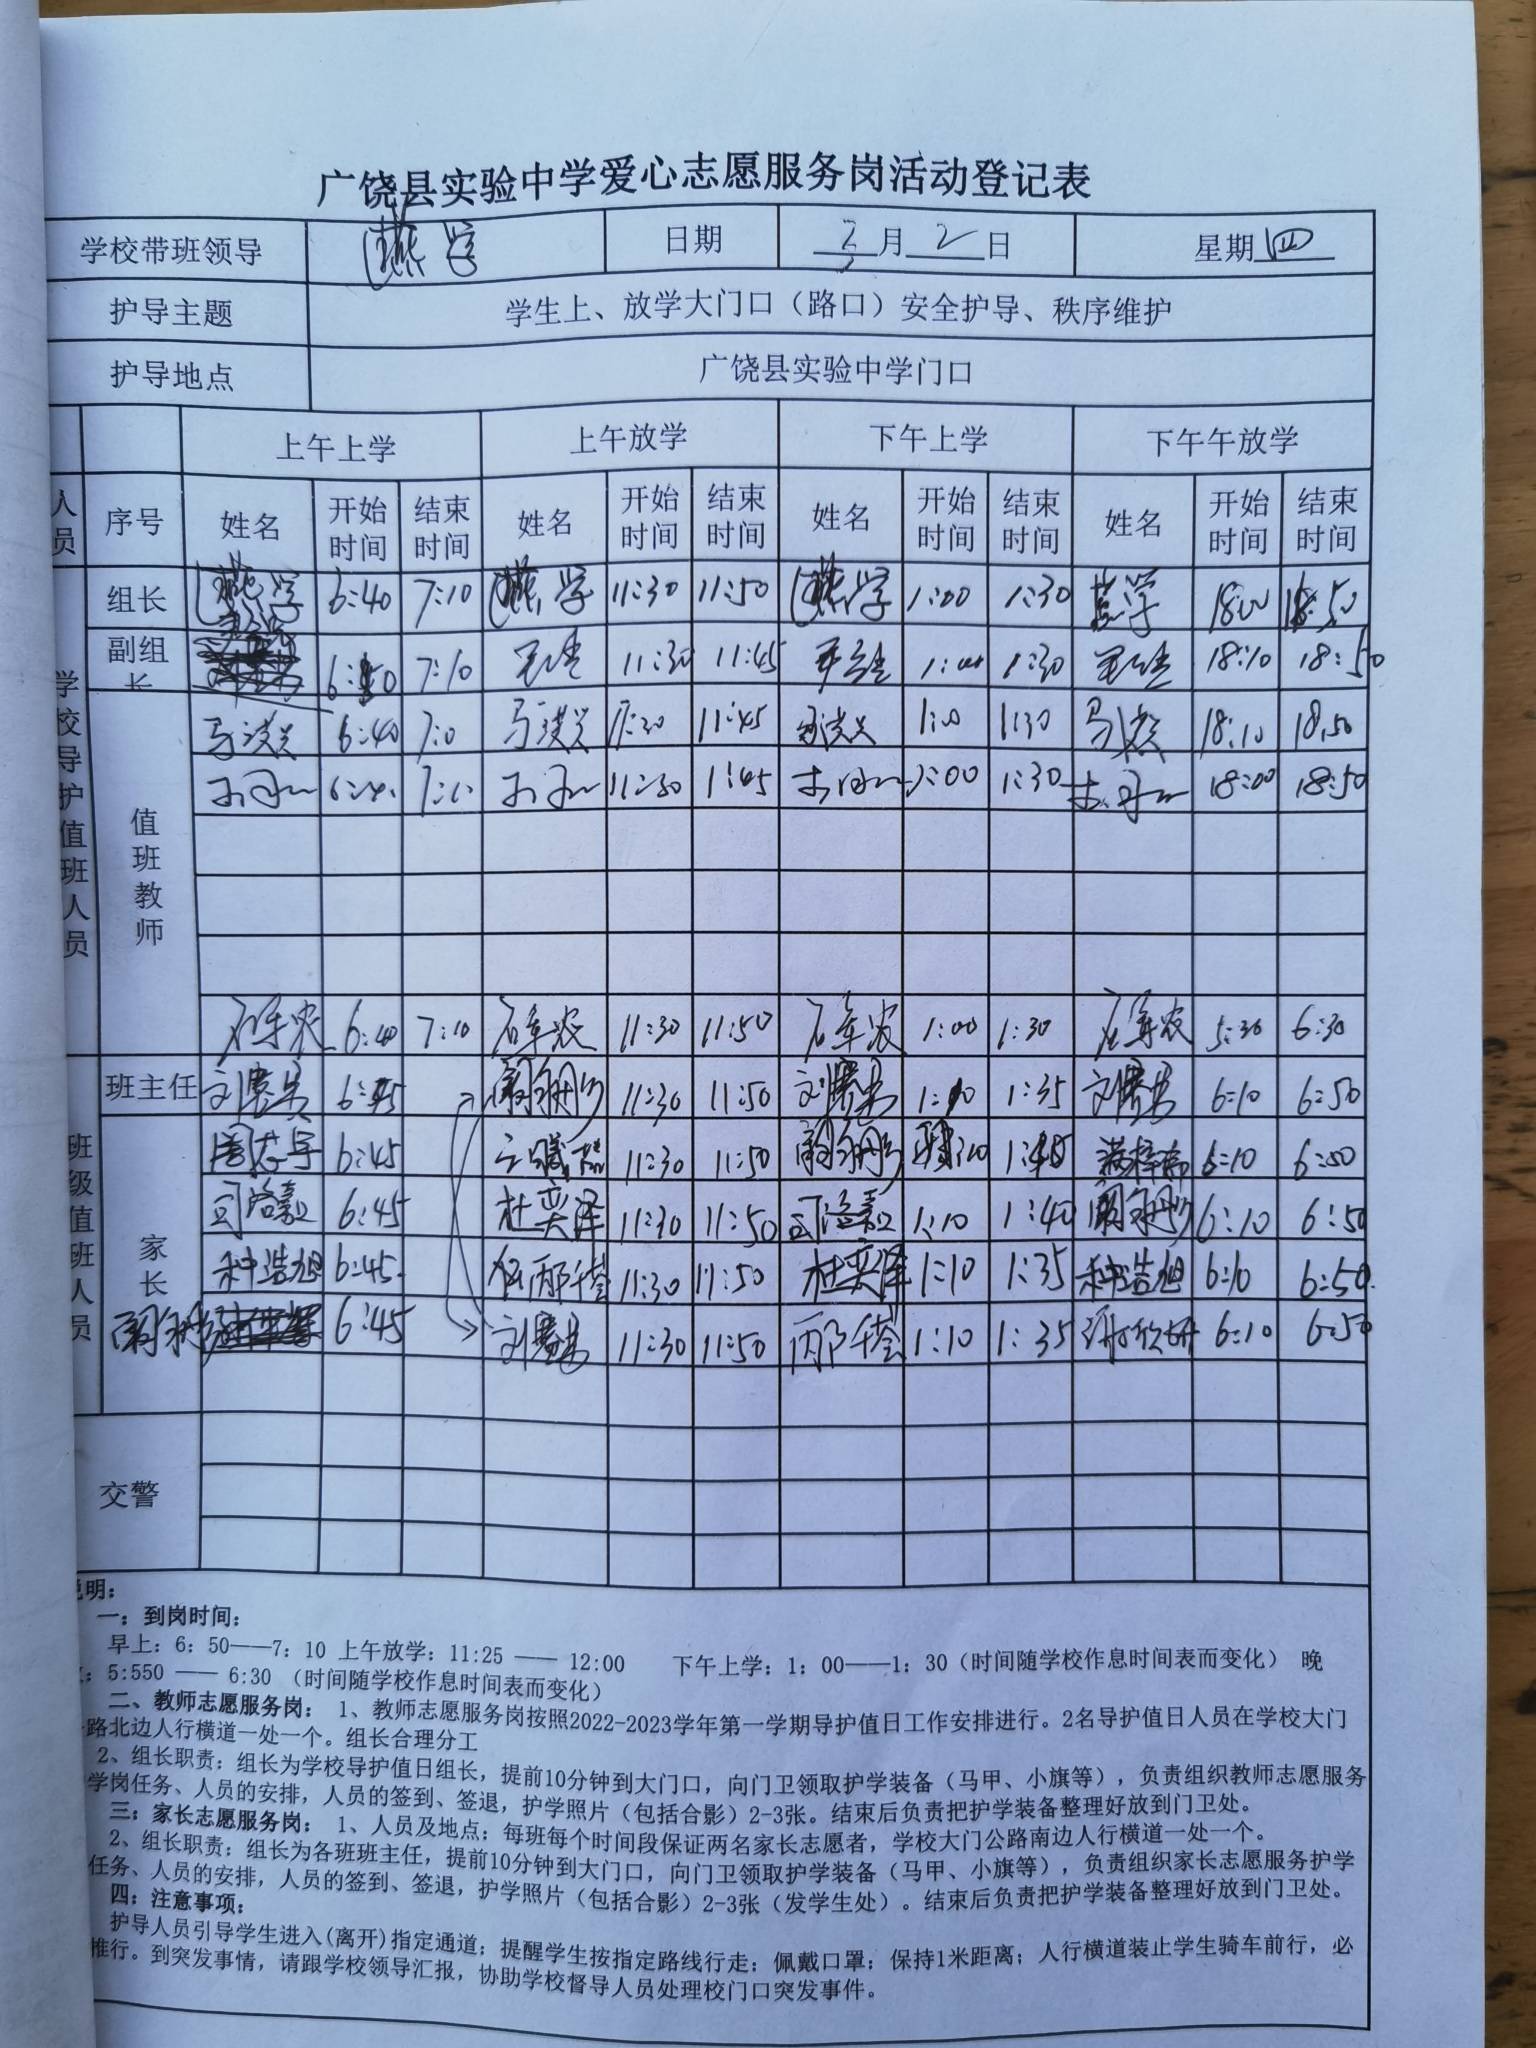 广饶县实验中学爱心志愿服务岗活动登记表
学校带班领导 日期 3月2日 星期四
护导主题 学生上、放学大门口（路口）安全护导、秩序维护
护导地点 广饶县实验中学门口
上午上学 上午放学 下午上学 下午午放学
人员 序号 姓名 开始时间 结束时间 姓名 开始时间 结束时间 姓名 开始时间 结束时间 姓名 开始时间 结束时间
学校导护值班人员
组长 6:40 7:10 11:30 11:50 1:00 1:30 18:00 18:50
副组长 7:10 11:30 11:45 1:30 18:10 18:50
值班教师
马洪兴 6:40 7:10 马洪兴 11:45 马洪兴 1:10 1:30 马洪兴 18:10 18:50
11:30 1:45 1:00 1:30 18:00 18:50
石军农 6:40 7:10 石军农 11:30 11:50 石军农 1:00 1:30 石军农 5:30 6:30
班级值班人员
班主任 6:45 11:30 11:50 1:35 6:10 6:50
家长
周芯宇 6:45 11:30 11:50 6:10 6:50
司洺毅 6:45 杜奕泽 11:30 11:50 司洺毅 1:10 1:40 6:10 6:50
种浩旭 6:45 11:30 11:50 杜奕泽 1:10 1:35 种浩旭 6:10 6:50
6:45 11:30 11:50 邴千荟 1:10 1:35 谢欣妍 6:10 6:50
交警
说明：
一：到岗时间：
早上：6：50——7：10 上午放学：11:25 —— 12:00 下午上学：1：00——1：30（时间随学校作息时间表而变化） 晚
：5:550 —— 6:30 （时间随学校作息时间表而变化）
二、教师志愿服务岗： 1、教师志愿服务岗按照2022-2023学年第一学期导护值日工作安排进行。2名导护值日人员在学校大门
路北边人行横道一处一个。组长合理分工
2、组长职责：组长为学校导护值日组长，提前10分钟到大门口，向门卫领取护学装备（马甲、小旗等），负责组织教师志愿服务
学岗任务、人员的安排，人员的签到、签退，护学照片（包括合影）2-3张。结束后负责把护学装备整理好放到门卫处。
三：家长志愿服务岗： 1、人员及地点：每班每个时间段保证两名家长志愿者，学校大门公路南边人行横道一处一个。
2、组长职责：组长为各班班主任，提前10分钟到大门口，向门卫领取护学装备（马甲、小旗等），负责组织家长志愿服务护学
任务、人员的安排，人员的签到、签退，护学照片（包括合影）2-3张（发学生处）。结束后负责把护学装备整理好放到门卫处。
四：注意事项：
护导人员引导学生进入(离开)指定通道；提醒学生按指定路线行走；佩戴口罩；保持1米距离；人行横道装止学生骑车前行，必
推行。到突发事情，请跟学校领导汇报，协助学校督导人员处理校门口突发事件。